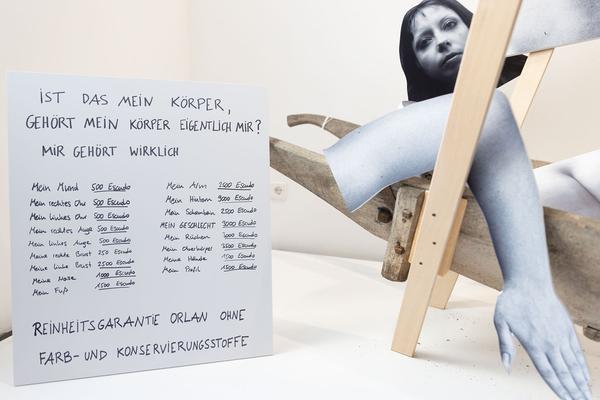 IST DAS MEIN KÖRPER,
GEHÖRT MEIN KÖRPER EIGENTLICH MIR?
MIR GEHÖRT WIRKLICH
Mein Mund 500 Escudo
Mein rechtes Ohr 500 Escudo
Mein linkes Ohr 500 Escudo
Mein rechtes Auge 500 Escudo
Mein linkes Auge 500 Escudo
Meine rechte Brust 250 Escudo
Meine linke Brust 250 Escudo
Meine Nase 1000 Escudo
Mein Fuß
Mein Arm 2500 Escudo
Mein Hintern 3000 Escudo
Mein Schambein 2500 Escudo
MEIN GESCHLECHT 3000 Escudo
Mein Rücken Escudo
Mein Oberkörper Escudo
Meine Hände 1500 Escudo
Mein Profil 1500 Escudo
REINHEITSGARANTIE ORLAN OHNE
FARB- UND KONSERVIERUNGSSTOFFE